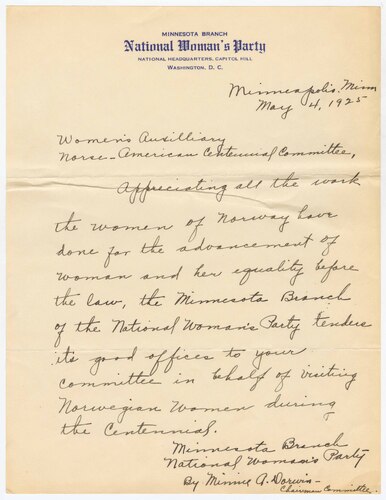 MINNESOTA BRANCH
National Woman's Party
NATIONAL HEADQUARTERS, CAPITOL HILL
WASHINGTON, D. C.
Minneapolis, Minn
May 4, 1925
Women's Auxilliary
Norse-American Centennial Committee,
Appreciating all the work
the women of Norway have
done for the advancement of
woman and her equality before
the law, the Minnesota Branch
of the National Woman's Party tenders
its good offices to your
committee in behalf of visiting
Norwegian Women during
the Centennial.
Minnesota Branch
National Woman's Party
By Minnie A. Dorwin
Chairman Committee.